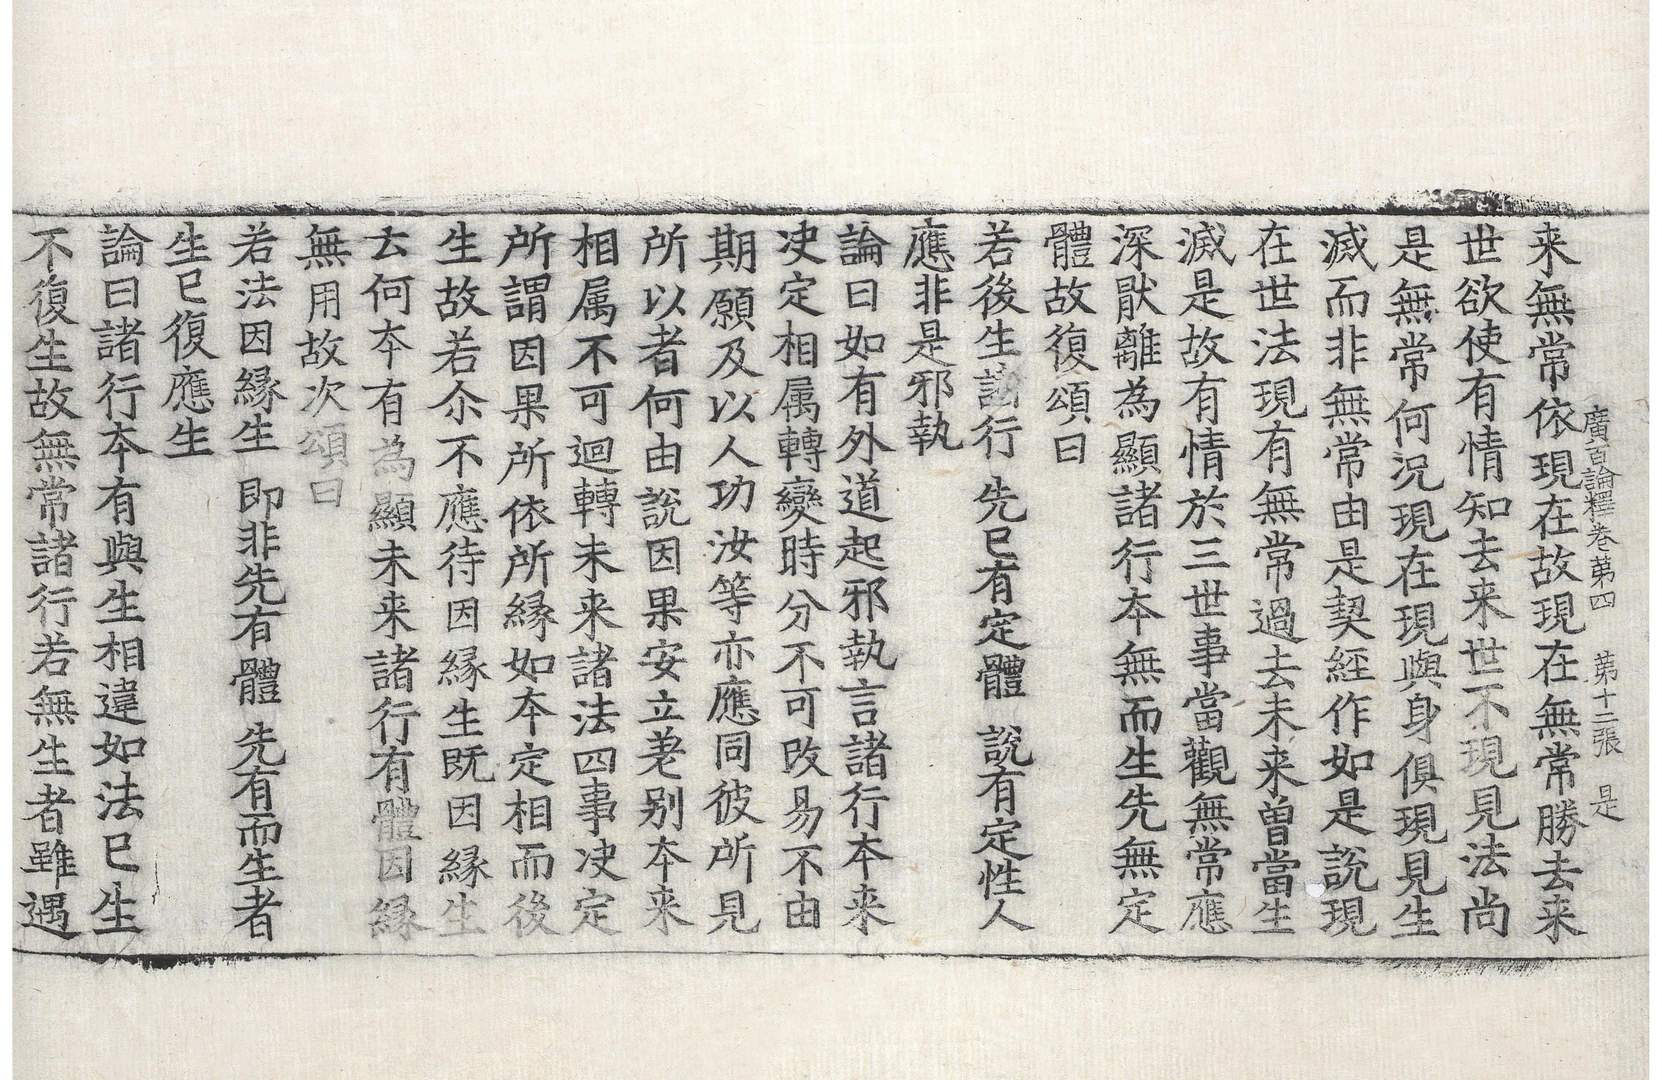 廣百論釋卷苐四　苐十二張　是
来無常依現在故現在無常勝去来
世欲使有情知去来世不現見法尚
是無常何況現在現與身俱現見生
滅而非無常由是契經作如是說現
在世法現有無常過去未来曽當生
滅是故有情於三世事當觀無常應
深猒離為顯諸行夲無而生先無定
體故復頌曰
若後生諸行　先已有定體　說有定性人
應非是邪執
論曰如有外道起邪執言諸行夲来
决定相属轉變時分不可改易不由
期願及以人功汝等亦應同彼所見
所以者何由說因果安立差别夲来
相属不可迴轉未来諸法四事决定
所謂因果所依所縁如夲定相而後
生故若尒不應待因縁生既因縁生
去何夲有為顯未来諸行有體因縁
無用故次頌曰
若法因縁生　即非先有體　先有而生者
生已復應生
論曰諸行夲有與生相違如法已生
不復生故無常諸行若無生者雖遇